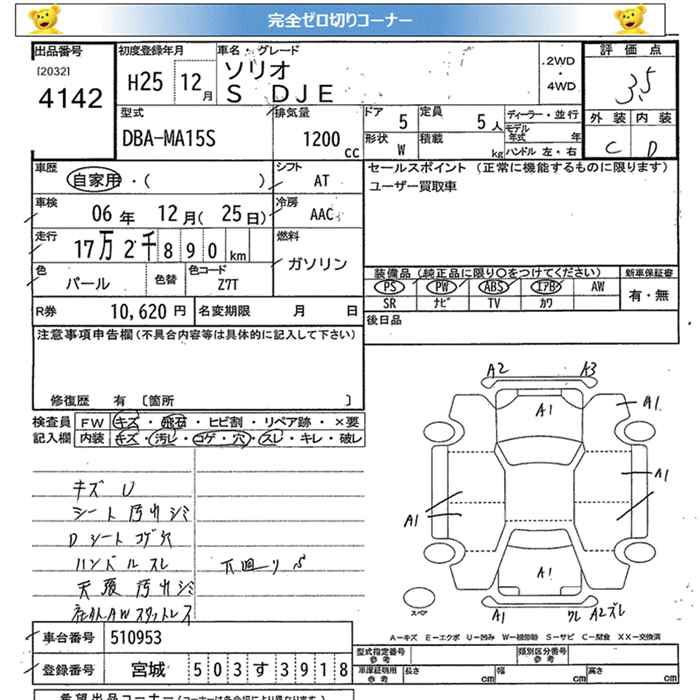 完全ゼロ切りコーナー
出品番号
[2032]
4142
初度登録年月
H25 12月
車名・グレード
ソリオ
S DJE
2WD
・
4WD
評価点
3.5
外装 内装
C D
型式
DBA-MA15S
排気量
1200 cc
ドア 5
定員 5人
形状 W
積載 kg
ディーラー・並行
モデル年式 年
ハンドル 左・右
車歴
自家用・( )
シフト
AT
セールスポイント (正常に機能するものに限ります)
ユーザー買取車
車検
06年 12月( 25日)
冷房
AAC
走行
17万2千890km
燃料
ガソリン
色
パール
色替
色コード
Z7T
装備品(純正品に限り○をつけてください)
PS PW ABS エアB AW
SR ナビ TV カワ
新車保証書
有・無
R券 10,620円
名変期限 月 日
後日品
注意事項申告欄(不具合内容等は具体的に記入して下さい)
修復歴 有 〔箇所 〕
検査員記入欄
FW キズ・飛石・ヒビ割・リペア跡・×要
内装 キズ・汚レ・コゲ・穴・スレ・キレ・破レ
キズ U
シート 汚れ シミ
D シート コゲ穴
ハンドル スレ
下回り S
天張 汚れ シミ
社外AW スタットレス
A2 A3
A1
A1
A1
A1
A1
A1
クレ A2ズレ
スペア
A-キズ E-エクボ U-凹み W-補修跡 S-サビ C-腐食 XX-交換済
車台番号 510953
登録番号 宮城 503す3918
型式指定番号
参考
類別区分番号
参考
車庫証明用
参考
長さ cm
幅 cm
高さ cm
希望出品コーナー